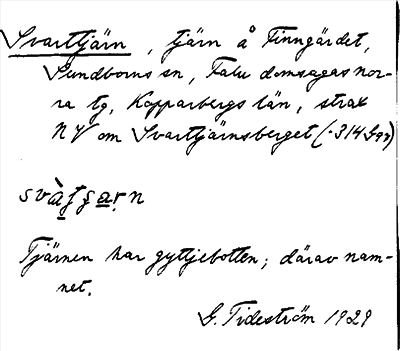 Svarttjärn, tjärn å Finngärdet,
Sundborns sn, Falu domsagas nor-
ra tg, Kopparbergs län, strax
NV om Svarttjärnsberget (·314
svàʈʂaṛn
Tjärnen har gyttjebotten; därav nam-
net.
G. Tideström 1929